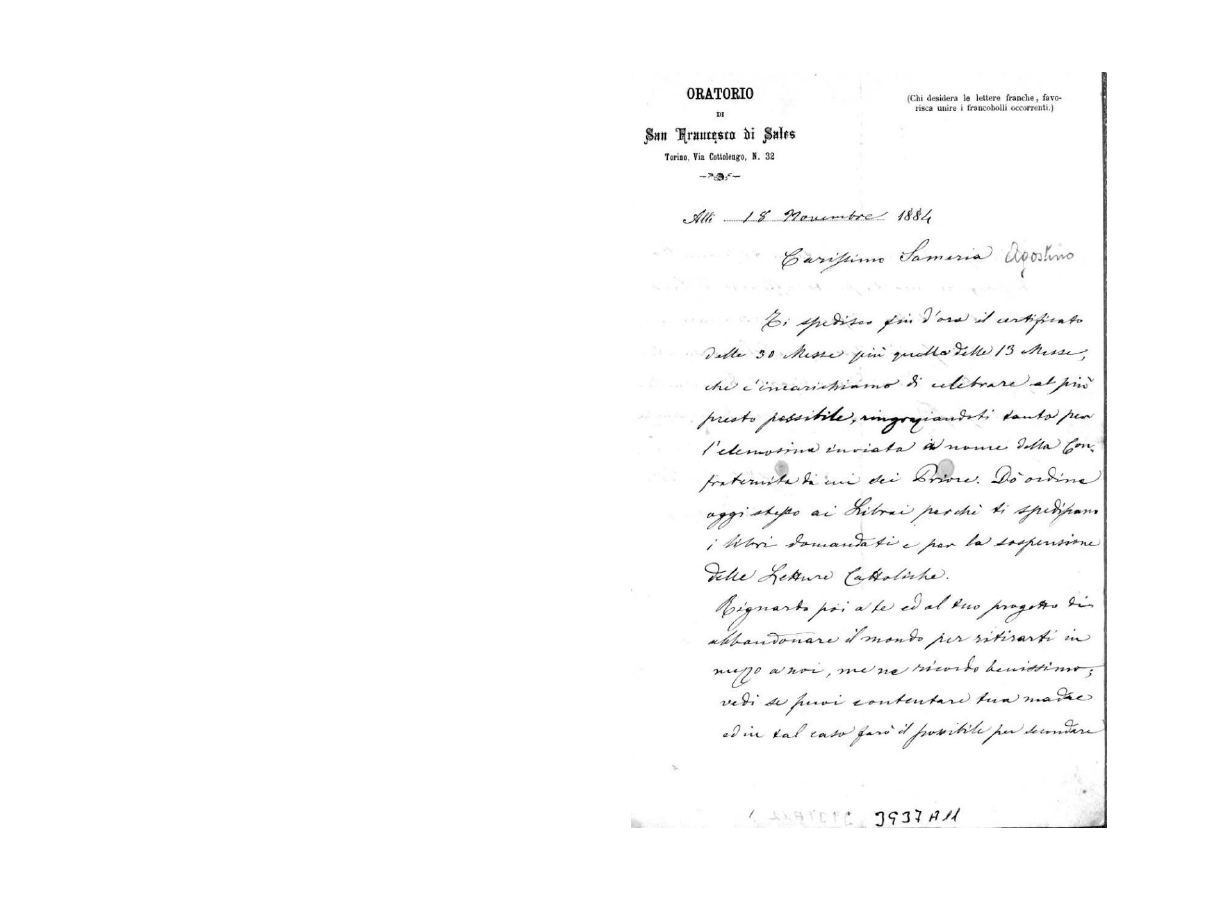 ORATORIO
DI
San Francesco di Sales
Torino, Via Cottolengo, N. 32
(Chi desidera le lettere franche, favo-
risca unire i francobolli occorrenti.)
Alli 18 Novembre 1884
Carissimo Sameria Agostino
Ti spedisco fin d'ora il certificato
delle 30 Messe più quello delle 13 Messe,
che c'incarichiamo di celebrare al più
presto possibile, ringraziandoti tanto per
l'elemosina inviata a nome della Con-
fraternita di cui sei Priore. Dò ordine
oggi stesso ai Librai perchè ti spediscano
i libri domandati e per la sospensione
delle Letture Cattoliche.
Riguardo poi a te ed al tuo progetto di
abbandonare il mondo per ritirarti in
mezzo a noi, me ne ricordo benissimo;
vedi se puoi contentare tua madre
ed in tal caso farò il possibile per secondare
3937A11